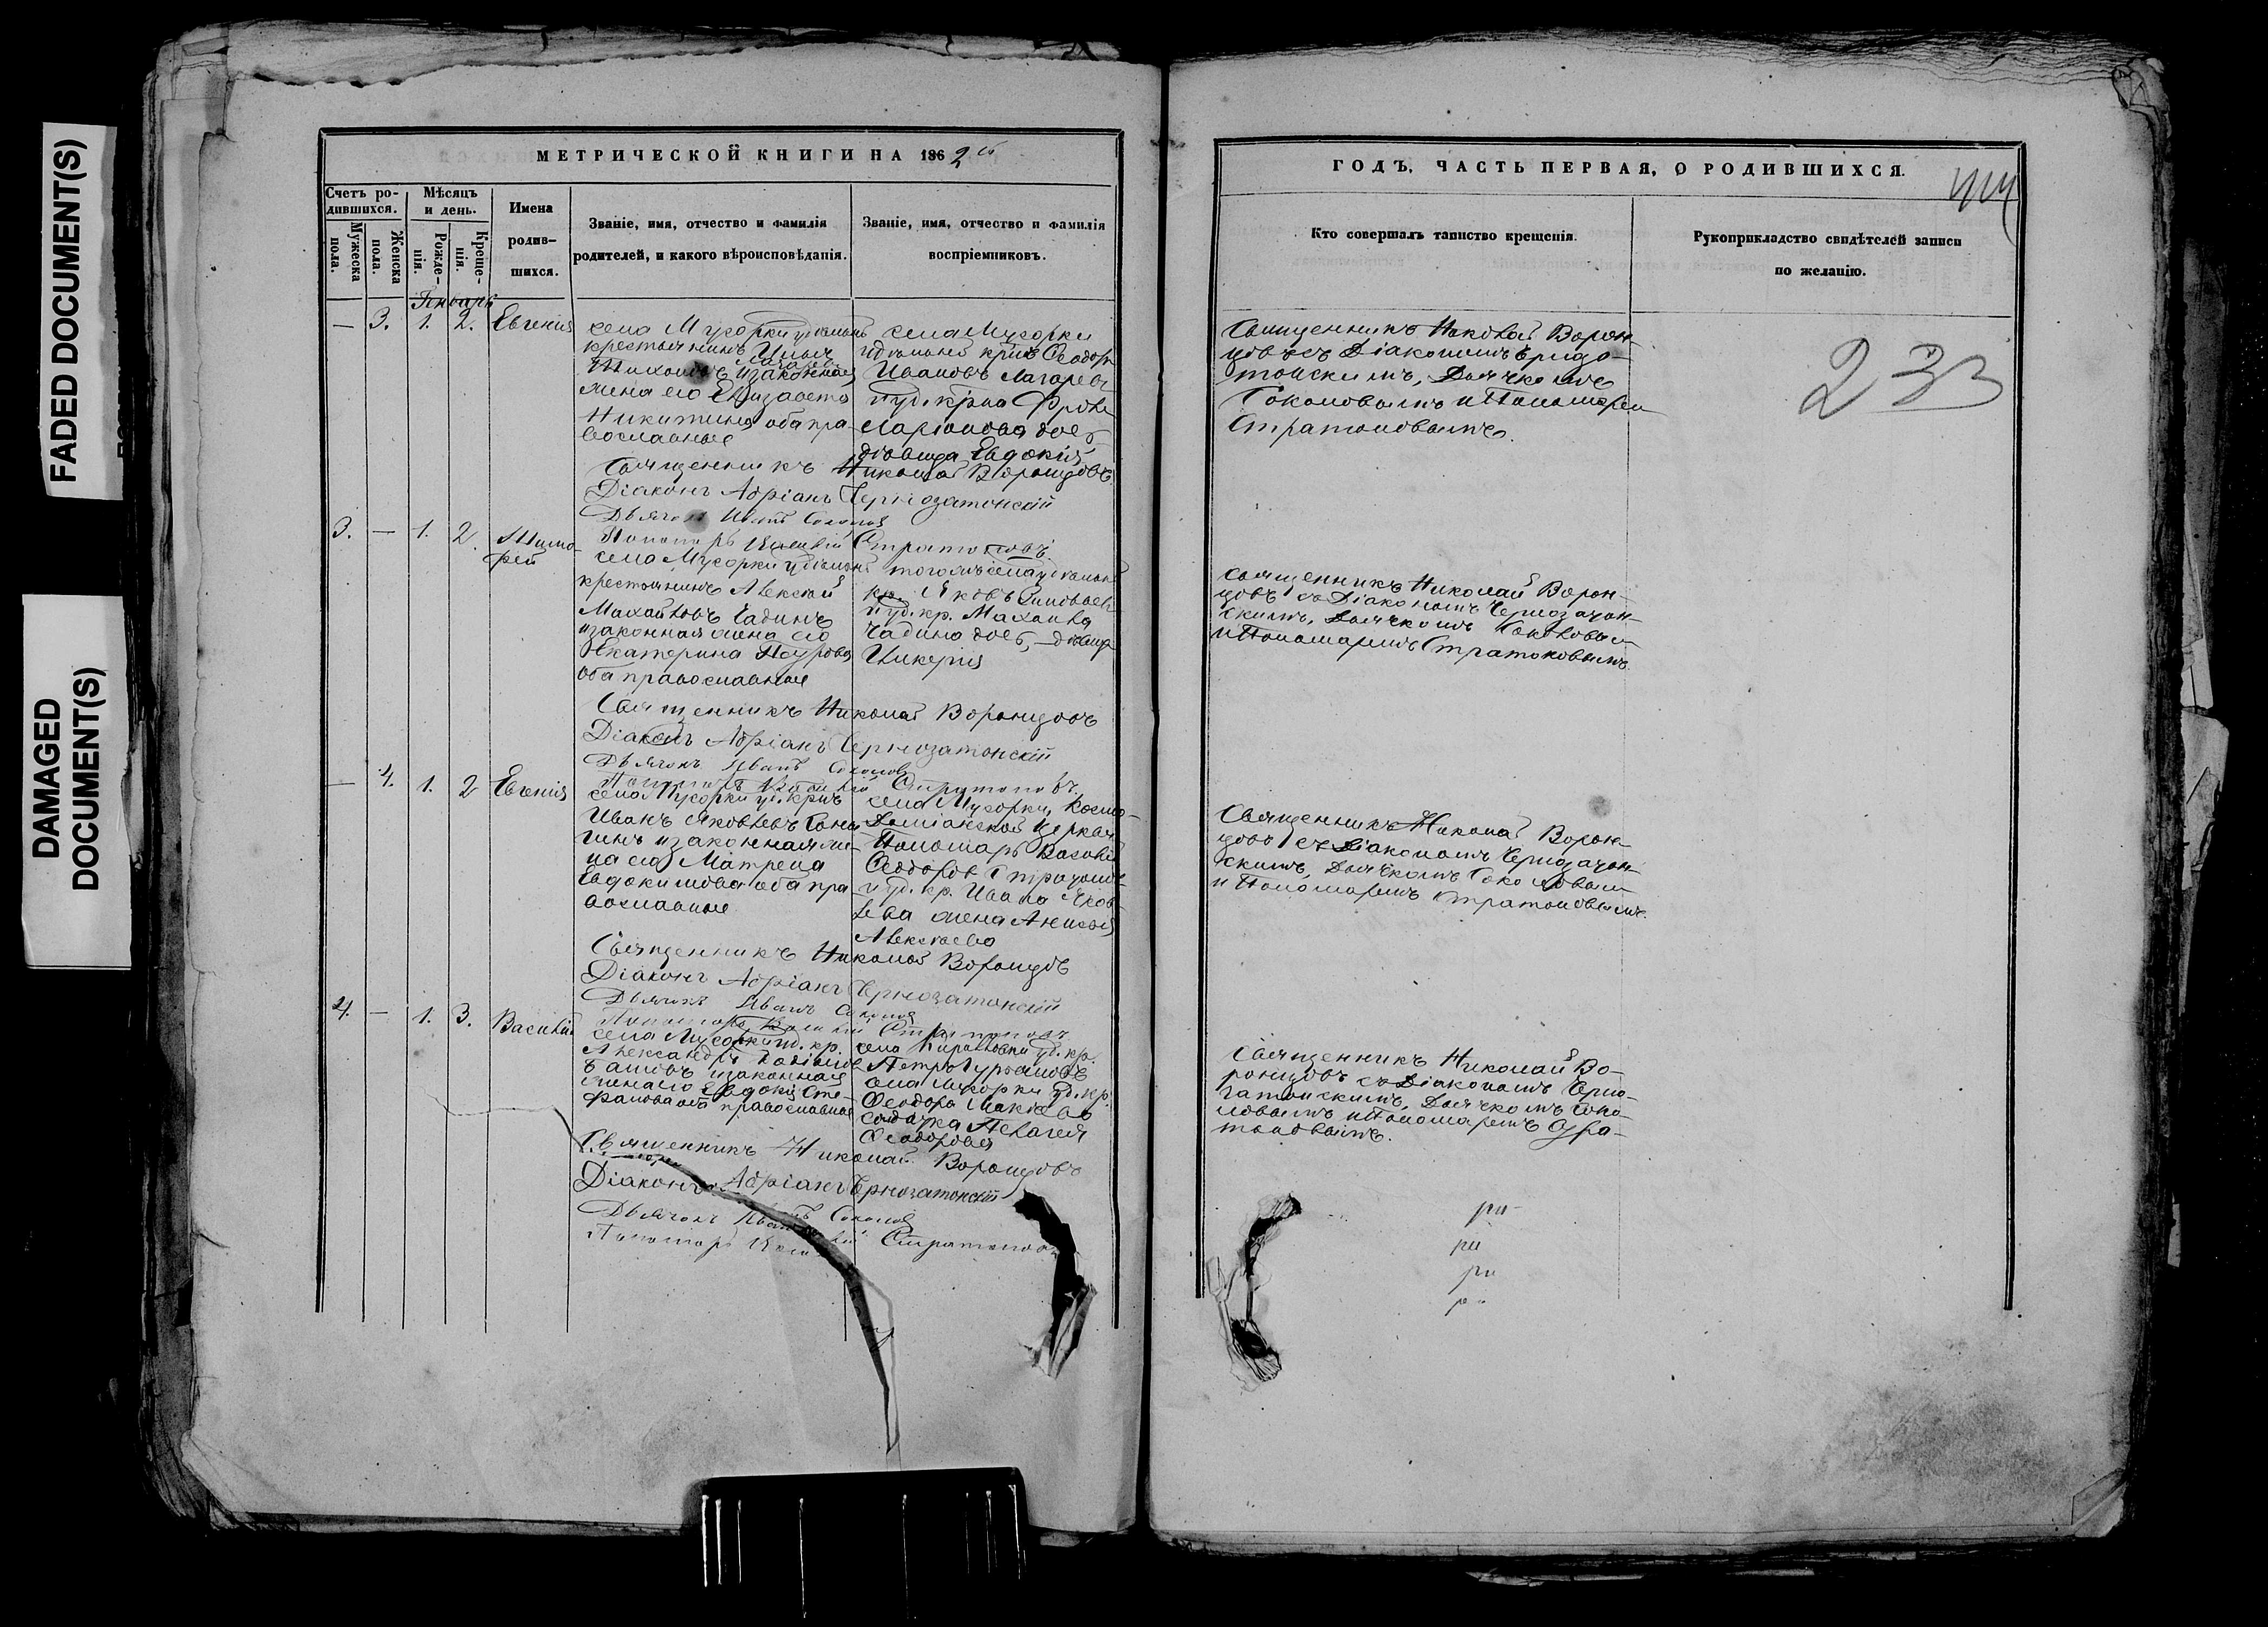 FADED DOCUMENT(S)
DAMAGED
DOCUMENT(S)
МЕТРИЧЕСКОЙ КНИГИ НА 1862 й
Счетъ ро-
дившихся.
Мужеска
пола.
Женска
пола.
Мѣсяцъ
и день.
Рожде-
нія.
Креще-
нія.
Имена
родив-
шихся.
Званіе, имя, отчество и фамилія
родителей, и какого вѣроисповѣданія.
Званіе, имя, отчество и фамилія
воспріемниковъ.
Январь
— 3. 1. 2. Евгенія
села Мусорки удѣльный
крестьянинъ
и законная
жена его Елизавета
Никитина оба пра-
вославные
села Мусорки
удѣльный Ѳеодоръ
Ивановъ Лагаревъ
и уд.
Ларіонова
дѣвица Евдокія
Священникъ Николай Воронцовъ
Діаконъ Адріанъ Чернозатонскій
Дьячокъ Иванъ Соколовъ
Пономарь Василій Стратоновъ
3. — 1. 2. Тимо-
фей
села Мусорки удѣльный
крестьянинъ Алексѣй
Михайловъ Чадинъ
и законная жена его
Екатерина
оба православные
тогожъ села удѣльный
кр. Яковъ
и уд. кр. Михаила
Чадина доч. дѣвица
Гликерія
Священникъ Николай Воронцовъ
Діаконъ Адріанъ Чернозатонскій
Дьячокъ Иванъ Соколовъ
Пономарь Василій Стратоновъ
— 4. 1. 2 Евгенія
села Мусорки уд. кр-нъ
Иванъ Яковлевъ
и законная же-
на его Матрена
Евдокимова оба пра-
вославные
села Мусорки, Космо-
Даміанской церкви
Пономарь Василій
Ѳеодоровъ
и уд. кр. Ивана Яков-
лева жена Анисья
Алексѣева
Священникъ Николай Воронцовъ
Діаконъ Адріанъ Чернозатонскій
Дьячокъ Иванъ Соколовъ
Пономарь Василій Стратоновъ
4. — 1. 3. Василій
села Мусорки уд. кр.
Александръ
и законная
жена его Евдокія Сте-
фанова оба православные
села уд. кр.
Петръ
села Мусорки уд. кр.
Ѳеодора
солдатка Пелагея
Ѳеодорова
Священникъ Николай Воронцовъ
Діаконъ Адріанъ Чернозатонскій
Дьячокъ Иванъ Соколовъ
Пономарь Василій Стратоновъ
ГОДЪ, ЧАСТЬ ПЕРВАЯ, О РОДИВШИХСЯ.
Кто совершалъ таинство крещенія.
Рукоприкладство свидѣтелей записи
по желанію.
233
Священникъ Николай Ворон-
цовъ съ Діакономъ Черноза-
тонскимъ, Дьячкомъ
Соколовымъ и Пономаремъ
Стратоновымъ.
Священникъ Николай Ворон-
цовъ съ Діакономъ Чернозатон-
скимъ, Дьячкомъ Соколовым
и Пономаремъ Стратоновымъ.
Священникъ Николай Ворон-
цовъ съ Діакономъ Чернозатон-
скимъ, Дьячкомъ Соколовым
и Пономаремъ Стратоновымъ.
Священникъ Николай Во-
ронцовъ съ Діакономъ Черно-
затонскимъ, Дьячкомъ Соко-
ловымъ и Пономаремъ Стра-
тоновымъ.